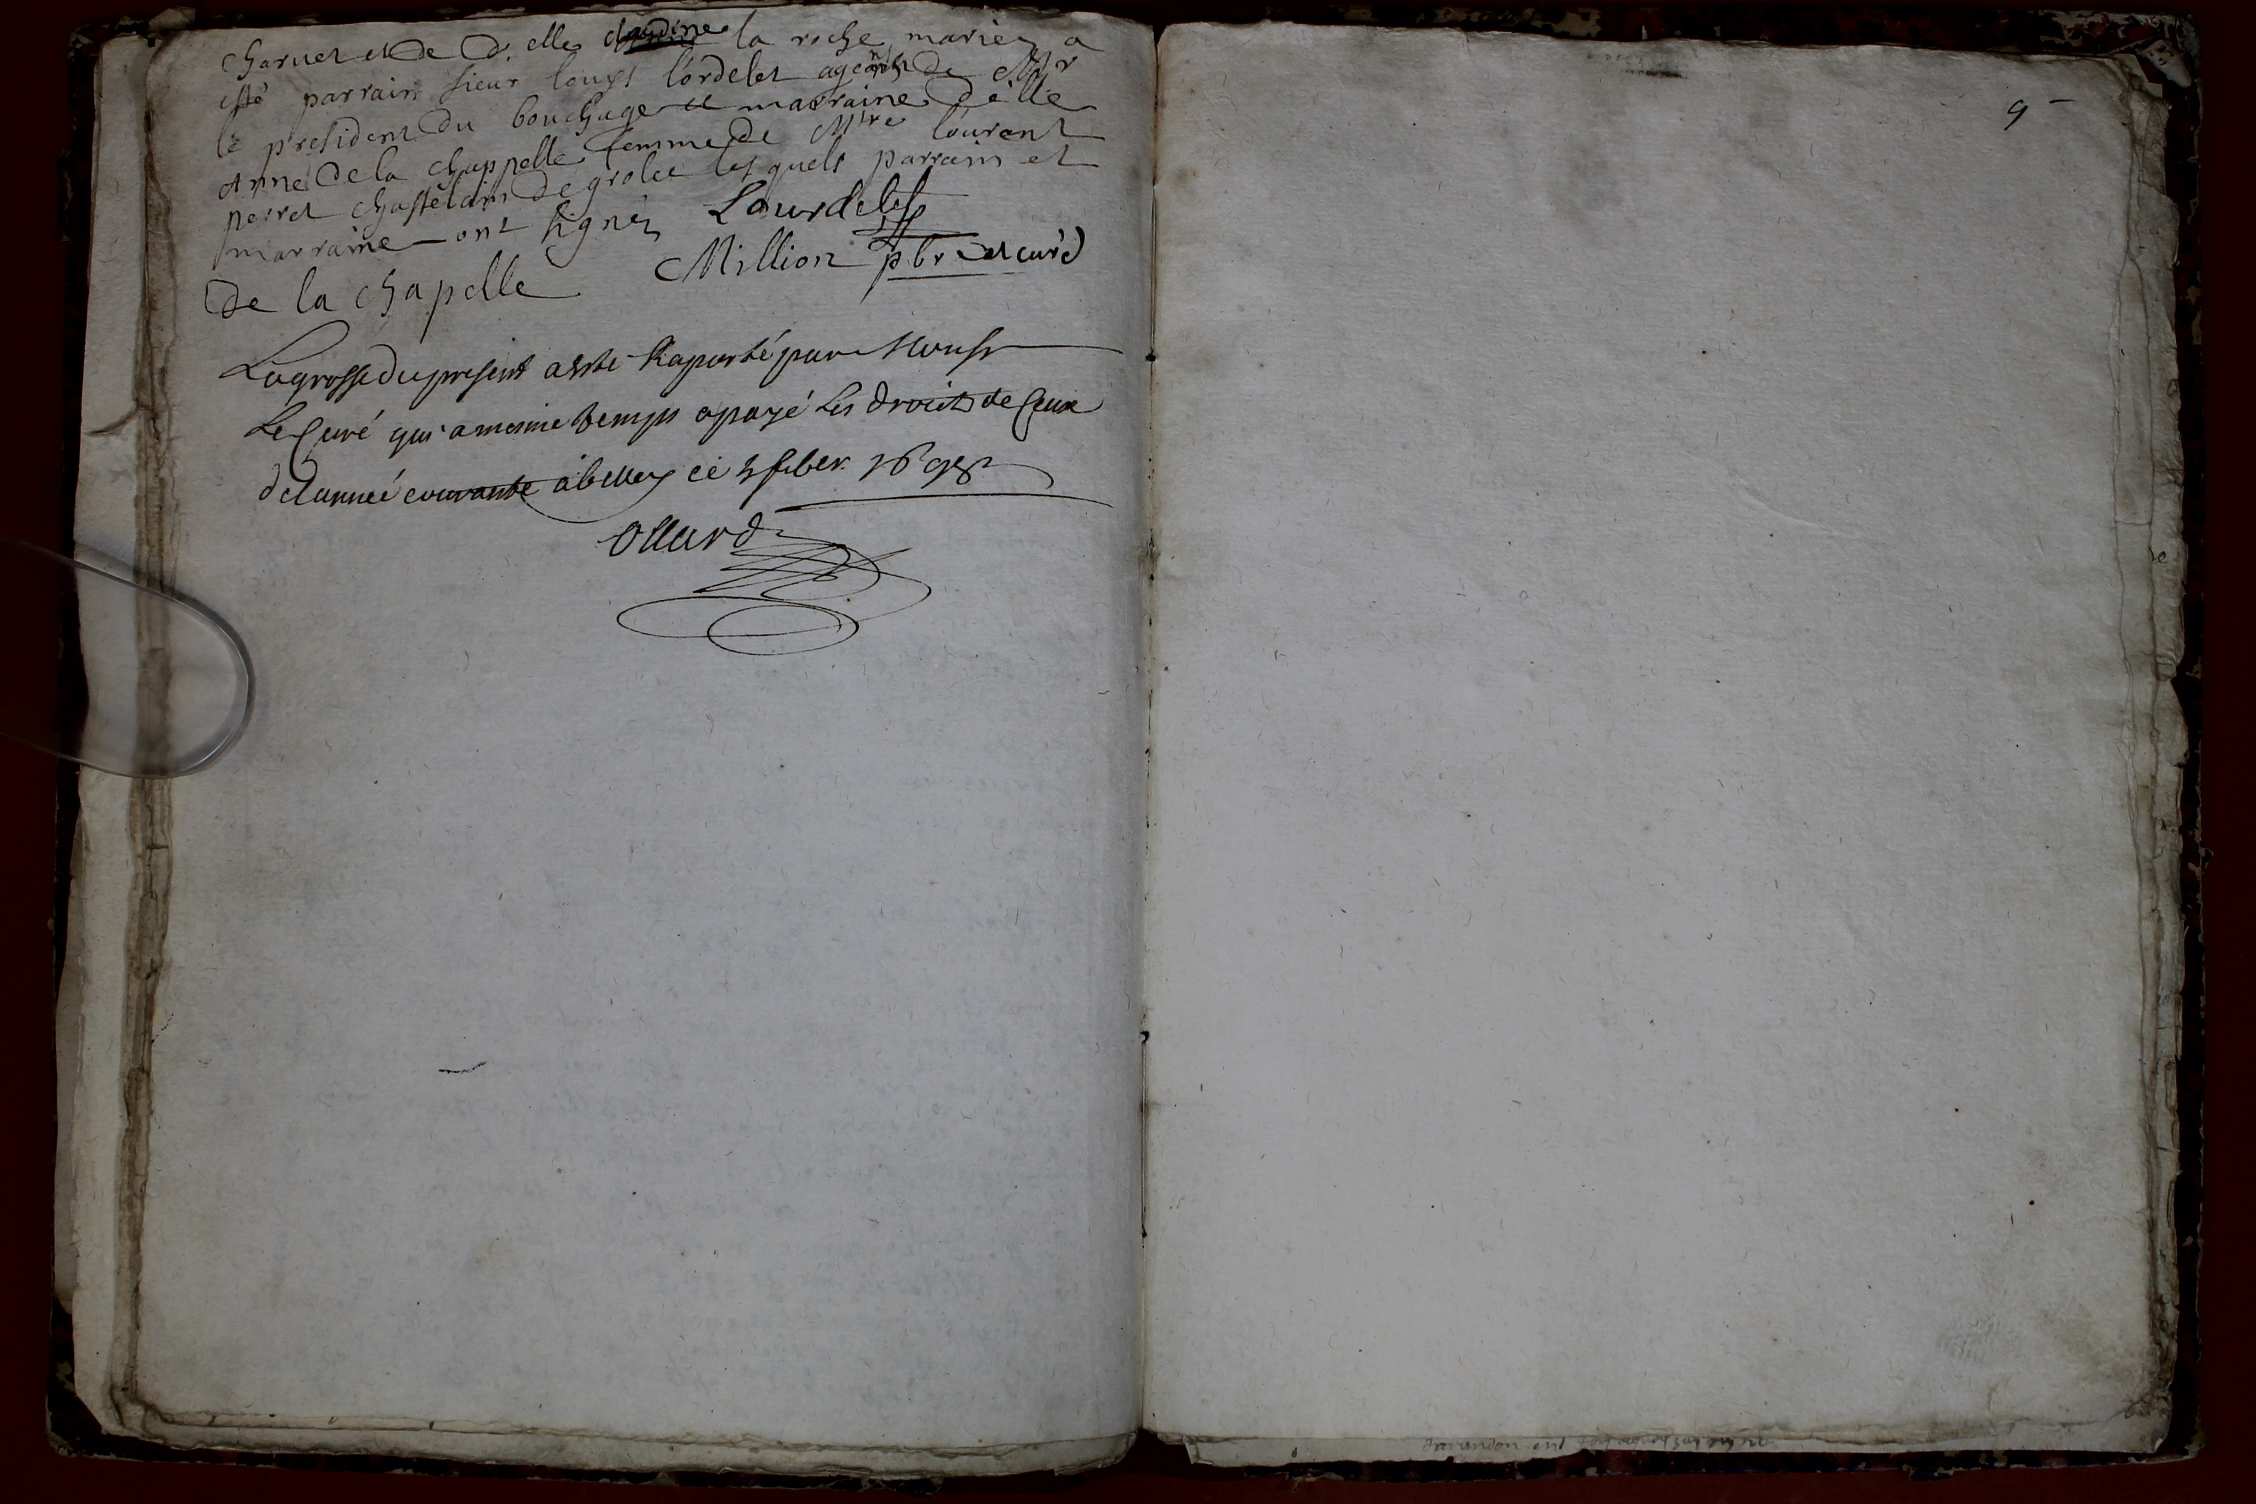 Charvet et de D. elle claudine la roche mariez a
esté parrain sieur louys lordelet agent de Mr
le president du bouchage et marraine d'elle
Anne de la chappelle femme de Mtre lourent
perret chastelain de grolee les quels parrain et
marraine ont signéz Lourdelet
de la chapelle Million pbr et curé
La grosse du present a este Raporté par Monsr
Le Curé qui a mesme temps a payé Les droits de Ceux
de lannee courante a belley ce feber 1698
Ollard
9